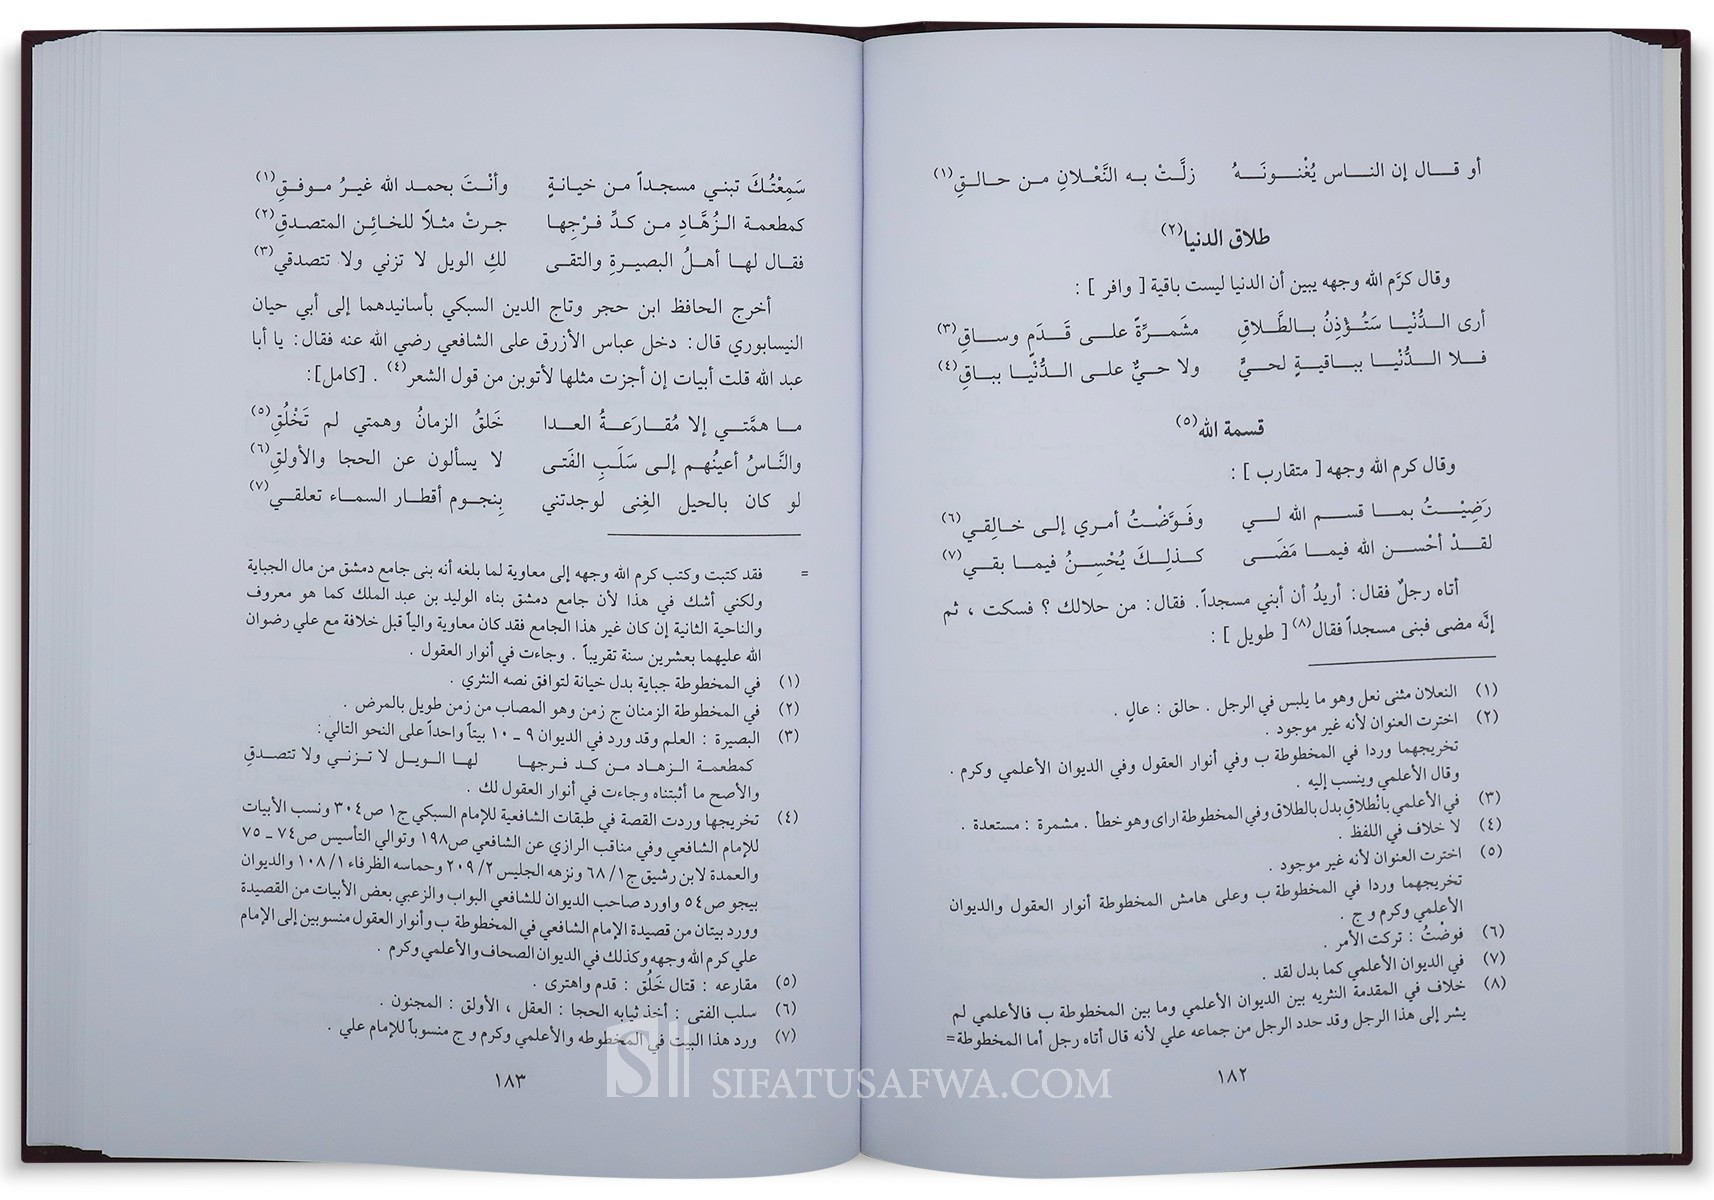 أو قال إن الناس يُغْنونَهُ زلَّتْ به النَّعْلانِ من حالقِ(١)
طلاق الدنيا(٢)
وقال كرَّم الله وجهه يبين أن الدنيا ليست باقية [ وافر ] :
أرى الدُّنْيا سَتُؤْذِنُ بالطَّلاقِ مشَمرِّةً على قَدَمٍ وساقِ(٣)
فلا الدُّنْيا بباقيةٍ لحيٍّ ولا حيٌّ على الدُّنْيا بباقِ(٤)
قسمة الله(٥)
وقال كرم الله وجهه [ متقارب ] :
رَضِيْتُ بما قسم الله لي وفَوَّضْتُ أمري إلى خالِقي(٦)
لقدْ أحْسن الله فيما مَضَى كذلِكَ يُحْسِنُ فيما بقي(٧)
أتاه رجلٌ فقال: أريدُ أن أبني مسجداً. فقال: من حلالك ؟ فسكت ، ثم
إنَّه مضى فبنى مسجداً فقال(٨) [ طويل ] :
(١) النعلان مثنى نعل وهو ما يلبس في الرجل . حالق : عالٍ .
(٢) اخترت العنوان لأنه غير موجود .
تخريجهما وردا في المخطوطة ب وفي أنوار العقول وفي الديوان الأعلمي وكرم .
وقال الأعلمي وينسب إليه .
(٣) في الأعلمي بانْطلاقٍ بدل بالطلاق وفي المخطوطة اراى وهو خطأ . مشمرة : مستعدة .
(٤) لا خلاف في اللفظ .
(٥) اخترت العنوان لأنه غير موجود .
تخريجهما وردا في المخطوطة ب وعلى هامش المخطوطة أنوار العقول والديوان
الأعلمي وكرم و ج .
(٦) فوضْتُ : تركت الأمر .
(٧) في الديوان الأعلمي كما بدل لقد .
(٨) خلاف في المقدمة النثريه بين الديوان الأعلمي وما بين المخطوطة ب فالأعلمي لم
يشر إلى هذا الرجل وقد حدد الرجل من جماعه علي لأنه قال أتاه رجل أما المخطوطة=
١٨٢
سَمِعْتُكَ تبني مسجداً من خيانةٍ وأنْتَ بحمد الله غيرُ موفقِ(١)
كمطعمة الزُهَّادِ من كدِّ فرْجِها جرتْ مثلاً للخائِن المتصدقِ(٢)
فقال لها أهلُ البصيرةِ والتقى لكِ الويل لا تزني ولا تتصدقي(٣)
أخرج الحافظ ابن حجر وتاج الدين السبكي بأسانيدهما إلى أبي حيان
النيسابوري قال: دخل عباس الأزرق على الشافعي رضي الله عنه فقال: يا أبا
عبد الله قلت أبيات إن أجزت مثلها لأتوبن من قول الشعر(٤) . [كامل]:
ما همَّتي إلا مُقارَعةُ العدا خَلقُ الزمانُ وهمتي لم تَخْلُقِ(٥)
والنَّاسُ أعينُهم إلى سَلَبِ الفَتى لا يسألون عن الحجا والأولقِ(٦)
لو كان بالحيل الغِنى لوجدتني بِنجوم أقطار السماء تعلقي(٧)
= فقد كتبت وكتب كرم الله وجهه إلى معاوية لما بلغه أنه بنى جامع دمشق من مال الجباية
ولكني أشك في هذا لأن جامع دمشق بناه الوليد بن عبد الملك كما هو معروف
والناحية الثانية إن كان غير هذا الجامع فقد كان معاوية والياً قبل خلافة مع علي رضوان
الله عليهما بعشرين سنة تقريباً . وجاءت في أنوار العقول .
(١) في المخطوطة جباية بدل خيانة لتوافق نصه النثري .
(٢) في المخطوطة الزمنان ج زمن وهو المصاب من زمن طويل بالمرض .
(٣) البصيرة : العلم وقد ورد في الديوان ٩ ـ ١٠ بيتاً واحداً على النحو التالي:
كمطعمة الزهاد من كد فرجها لها الويل لا تزني ولا تتصدقِ
والأصح ما أثبتناه وجاءت في أنوار العقول لك .
(٤) تخريجها وردت القصة في طبقات الشافعية للإمام السبكي ج١ ص٣٠٤ ونسب الأبيات
للإمام الشافعي وفي مناقب الرازي عن الشافعي ص١٩٨ وتوالي التأسيس ص٧٤ ـ ٧٥
والعمدة لابن رشيق ج١/ ٦٨ ونزهه الجليس ٢٠٩/٢ وحماسه الظرفاء ١٠٨/١ والديوان
بيجو ص٥٤ واورد صاحب الديوان للشافعي البواب والزعبي بعض الأبيات من القصيدة
وورد بيتان من قصيدة الإمام الشافعي في المخطوطة ب وأنوار العقول منسوبين إلى الإمام
علي كرم الله وجهه وكذلك في الديوان الصحاف والأعلمي وكرم .
(٥) مقارعه : قتال خَلُق : قدم واهترى .
(٦) سلب الفتى : أخذ ثيابه الحجا : العقل ، الأولق : المجنون .
(٧) ورد هذا البيت في المخطوطه والأعلمي وكرم و ج منسوباً للإمام علي .
١٨٣
SIFATUSAFWA.COM